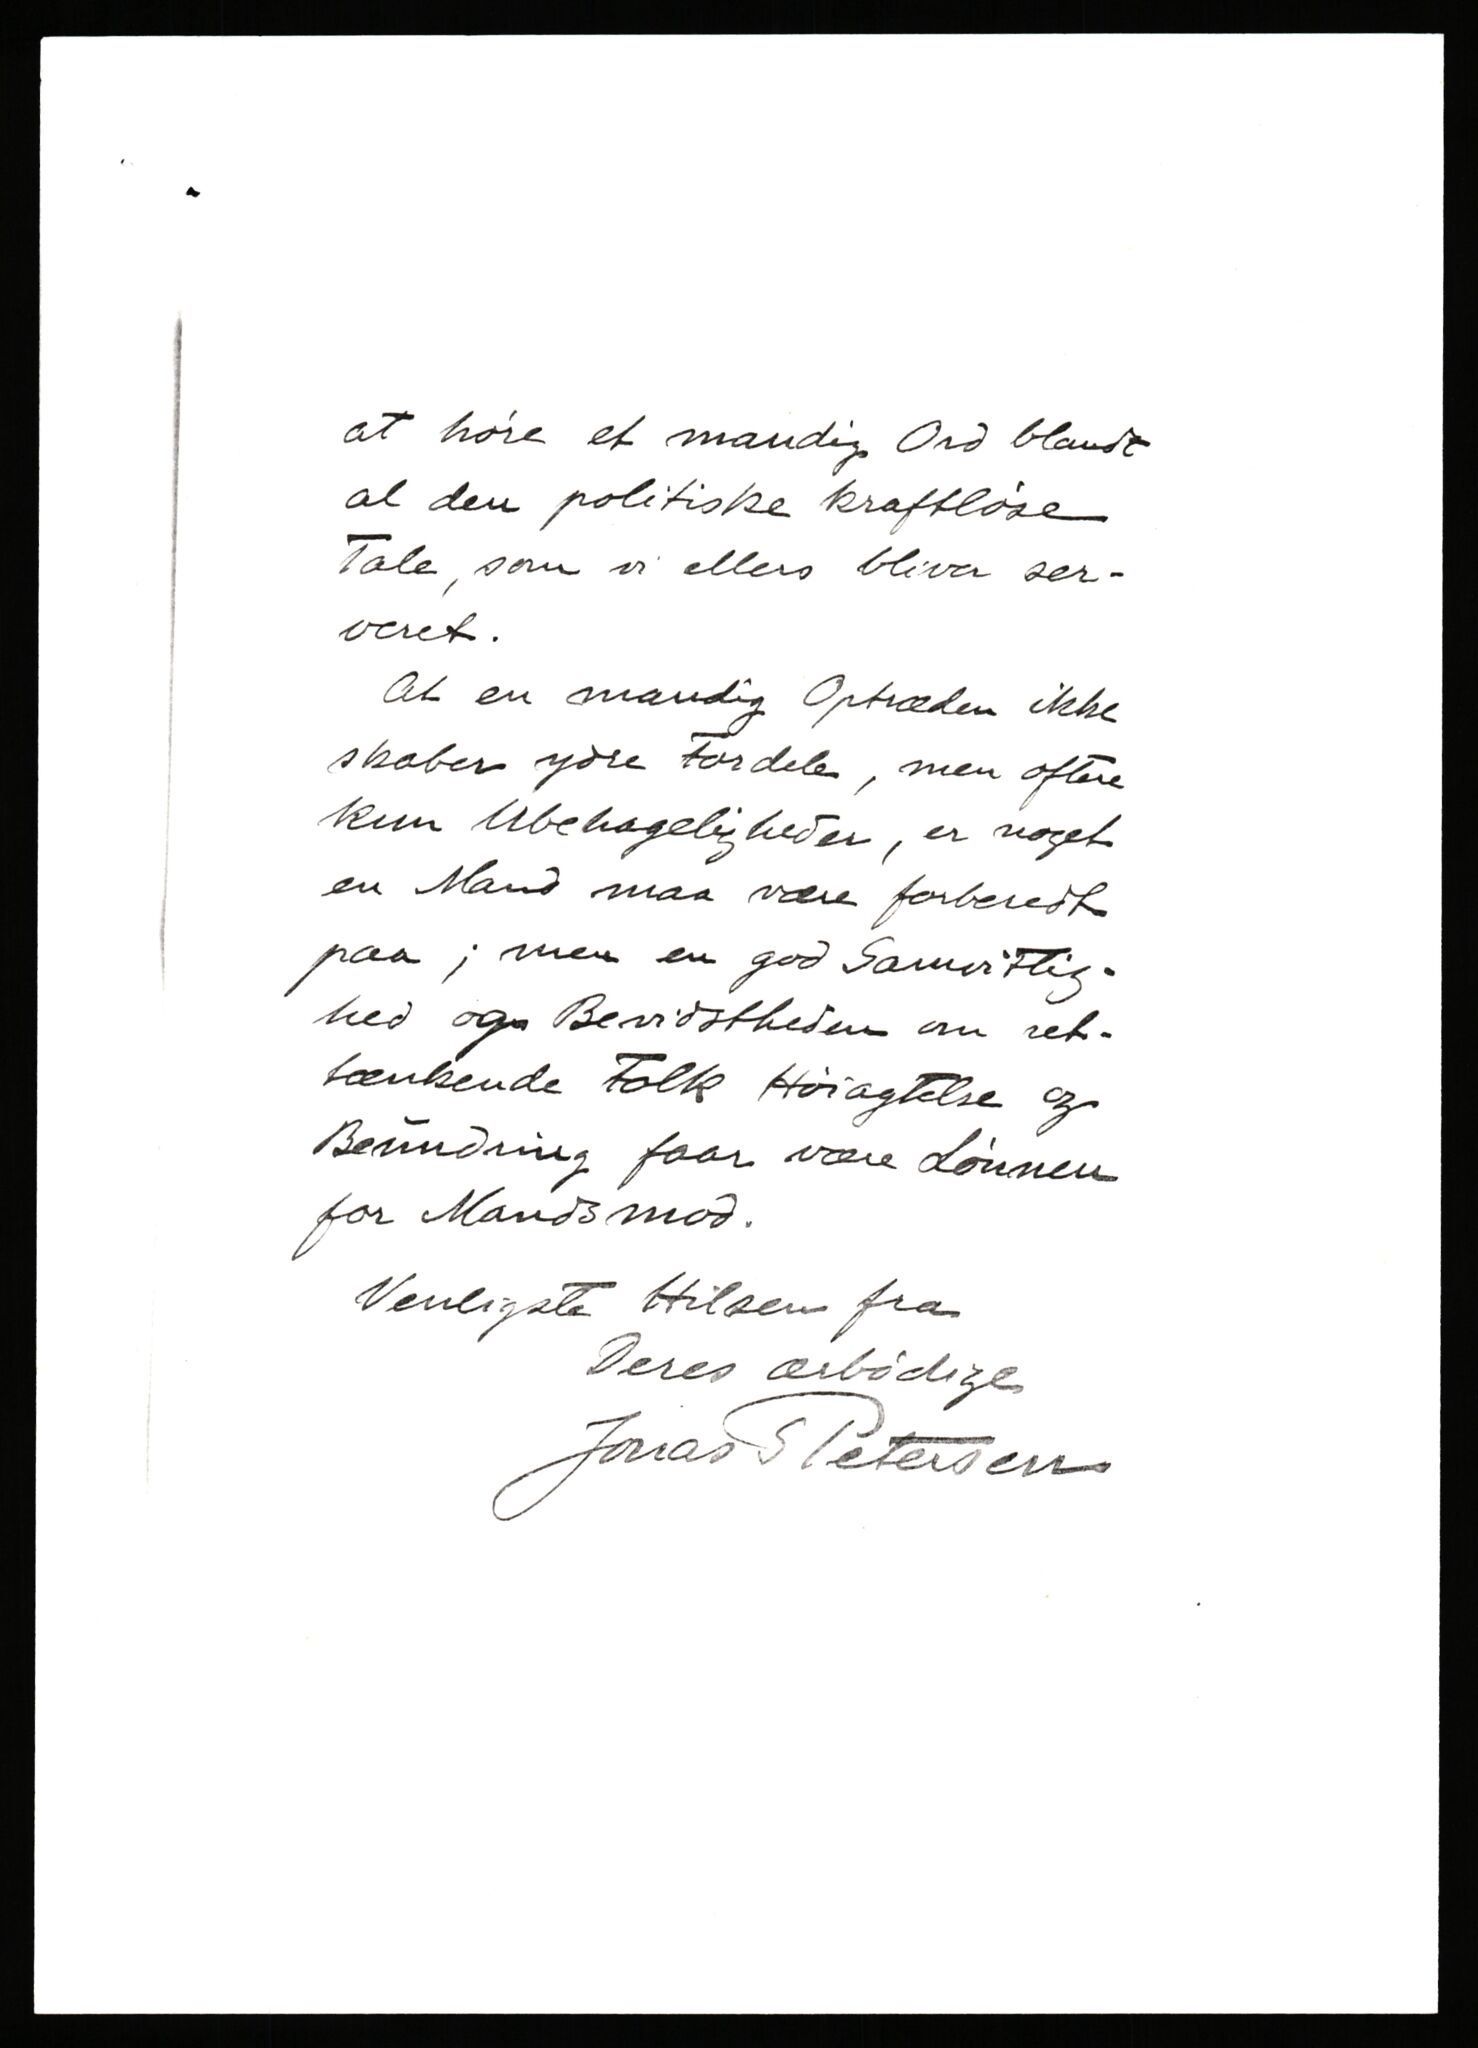 at høre et mandig Ord blandt
al den politiske kraftløse
Tale, som vi ellers bliver ser-
veret.
At en mandig Optræden ikke
skaber ydre Fordele, men oftere
kun Ubehageligheder, er noget
en Mand maa være forberedt
paa; men en god Samvittig-
hed og Bevidstheden om ret-
tænkende Folk Høiagtelse og
Beundring faar være Lønnen
for Mandsmod.
Venligste Hilsen fra
Deres ærbødige
Jonas S Petersen